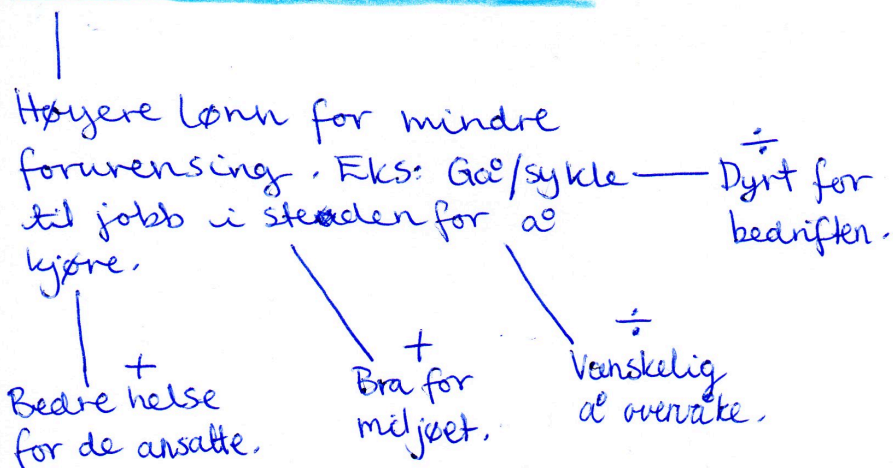 Høyere lønn for mindre
forurensing. Eks: Gå/sykle
til jobb i steden for å
kjøre.
÷
Dyrt for
bedriften.
+
Bedre helse
for de ansatte.
+
Bra for
miljøet.
÷
Vanskelig
å overvåke.